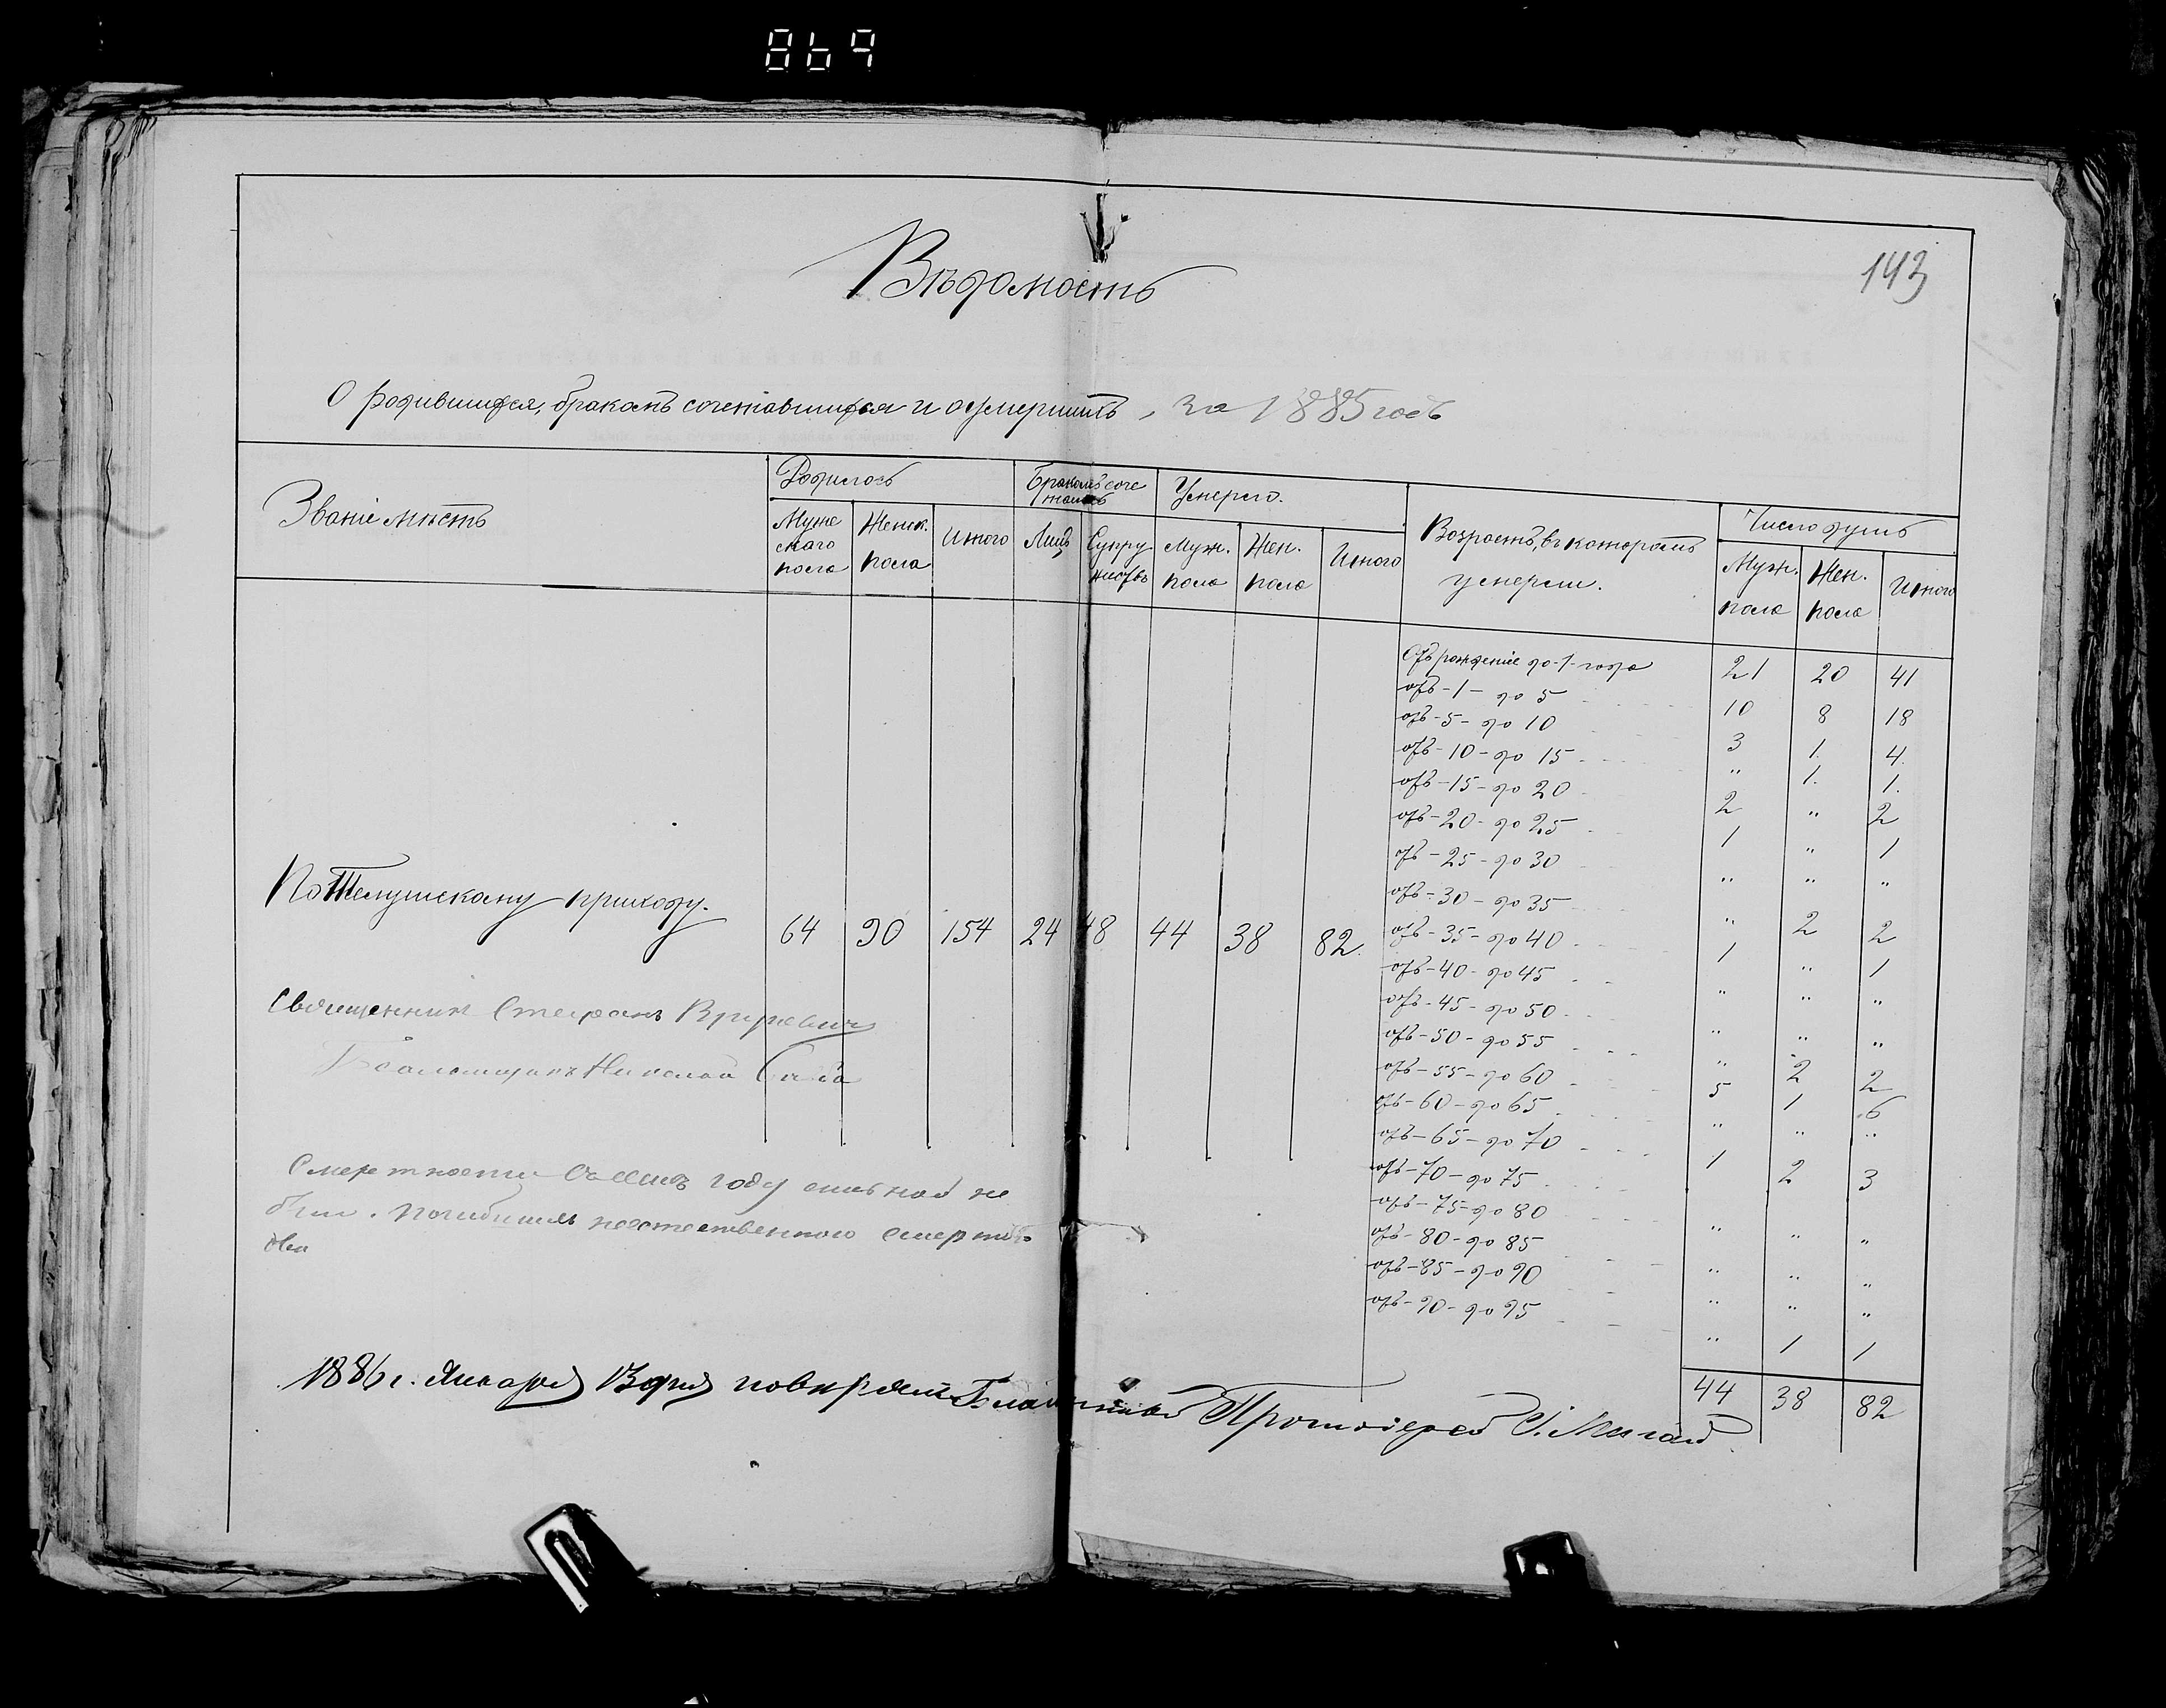 869
143
Вѣдомость
О родившихся, бракомъ сочетавшихся и о умершихъ, за 1885 годъ
Званіе мѣстъ
Родилось
Мужескаго пола
Женск. пола
Итого
Бракомъ сочетались
Лицъ
Супружествъ
Умерло.
Муж. пола
Жен. пола
Итого
Возрастъ, въ которомъ умерли.
Число душъ
Муж. пола
Жен. пола
Итого
Отъ рожденіе до-1-года 21 20 41
отъ-1-до 5 10 8 18
отъ-5-до 10 3 1. 4.
отъ-10-до 15 " 1. 1.
отъ-15-до 20 2 " 2
отъ-20-до 25 1 " 1
отъ-25-до 30 " " "
отъ-30-до 35 " 2 2
отъ-35-до 40 1 " 1
отъ-40-до 45 " " "
отъ-45-до 50 " " "
отъ-50-до 55 " 2 2
отъ-55-до 60 5 1 6
отъ-60-до 65 " " "
отъ-65-до 70 1 2 3
отъ-70-до 75 " " "
отъ-75-до 80 " " "
отъ-80-до 85 " " "
отъ-85-до 90 " 1 1
отъ-90-до 95
44 38 82
По Телушскому приходу. 64 90 154 24 48 44 38 82.
Священник Стефанъ
Псаломщикъ Николай
Смертности въ семъ году сильной не
было. Погибшихъ неестественного смертью
два
1886 г. Января дня повѣрялъ Благочинный Протоіерей